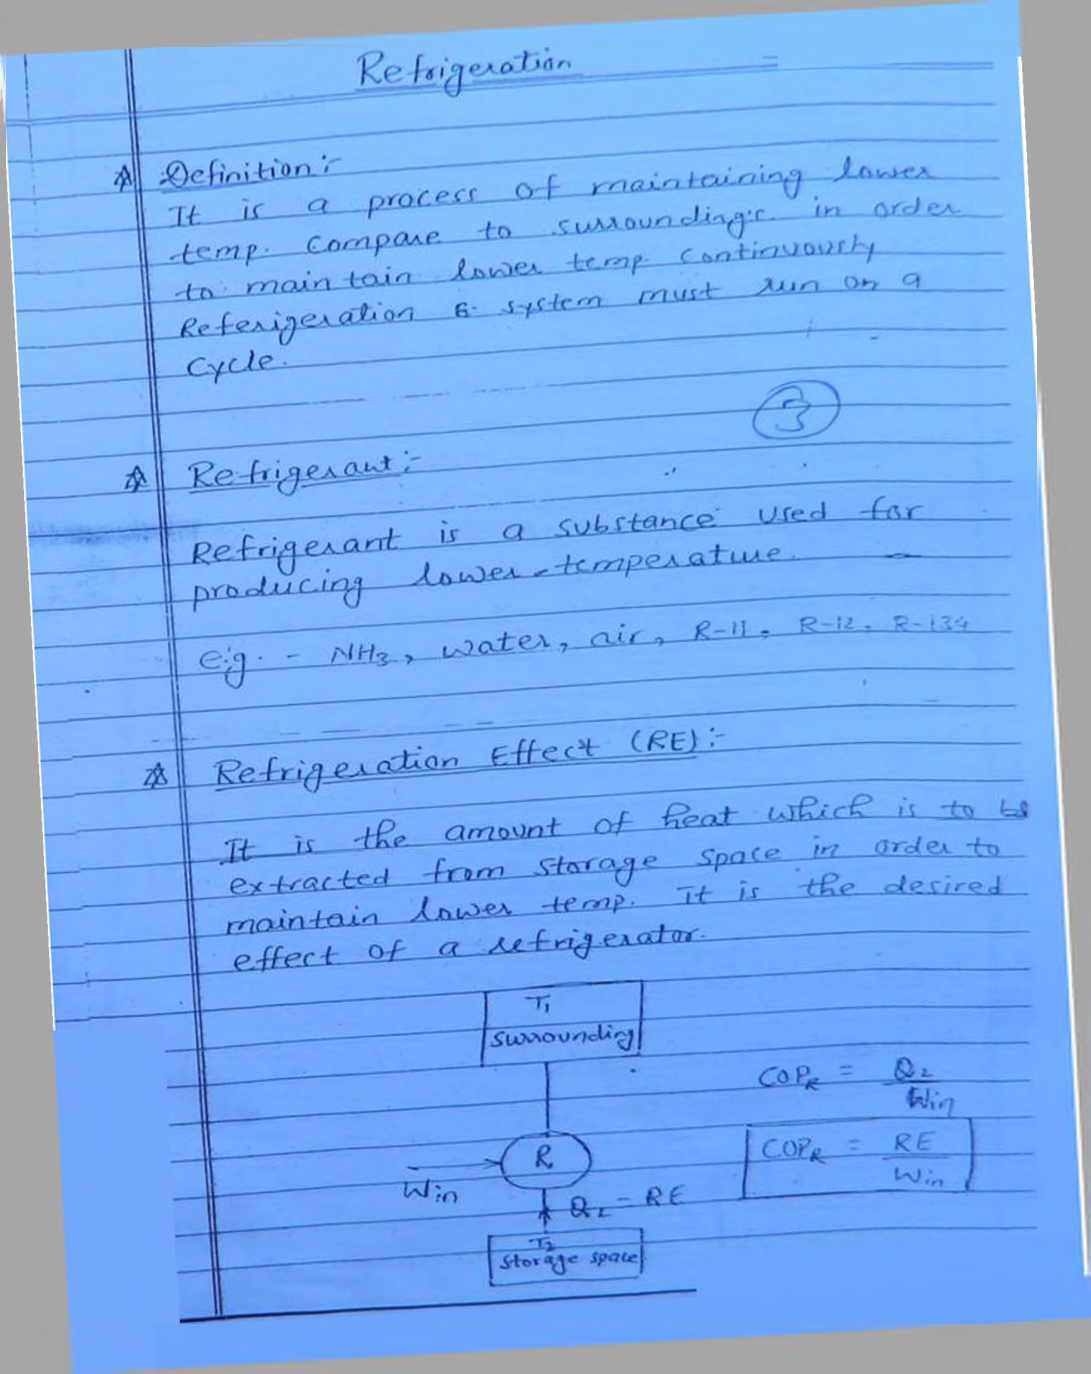 Refrigeration
Definition :-
It is a process of maintaining lower
temp. Compare to surrounding's. in order
to maintain lower temp. continuously
Referigeration & system must run on a
Cycle.
3
Refrigerant :-
Refrigerant is a substance used for
producing lower temperature.
e.g. - NH3, water, air, R-11, R-12, R-134
Refrigeration Effect (RE) :-
It is the amount of heat which is to be
extracted from storage space in order to
maintain lower temp. It is the desired
effect of a refrigerator.
T1
Surrounding
COPR = Q2
Win
R
COPR = RE
Win
Win
Q2 = RE
T2
Storage space